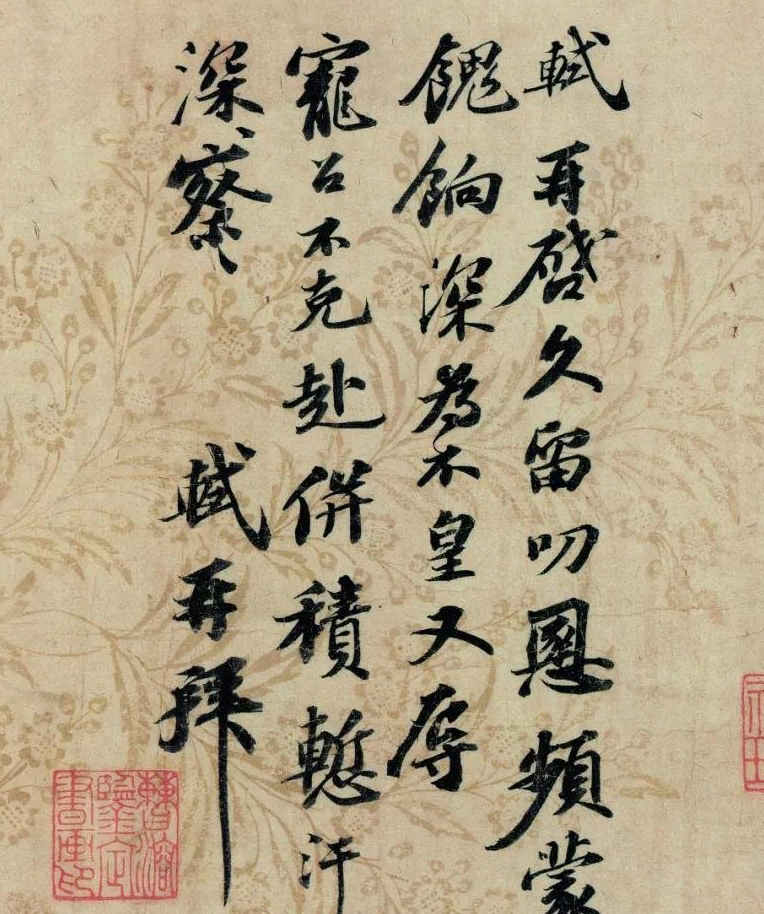 軾再啓久留叨恩頻蒙
餽餉深為不皇又辱
寵召不克赴併積慙汗
深察
軾再拜